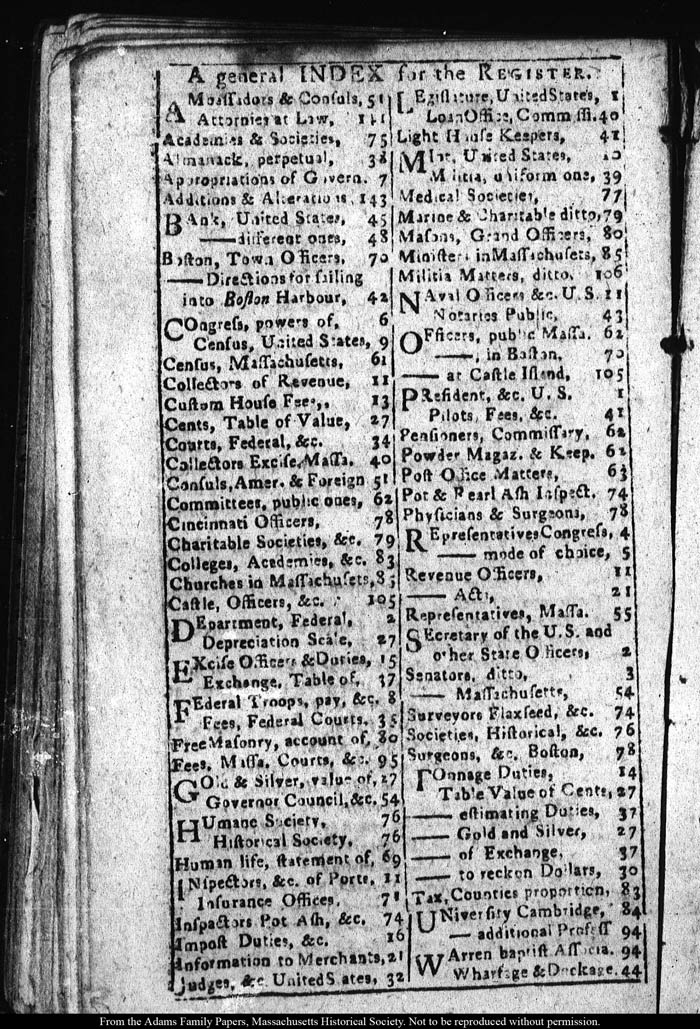 A general INDEX for the REGISTER.
AMbaſſadors & Conſuls, 51
Attornies at Law, 111
Academies & Societies, 75
Almanack, perpetual, 38
Appropriations of Govern. 7
Additions & Alterations, 143
BAnk, United States, 45
——different ones, 48
Boſton, Town Officers, 70
——Directions for ſailing
into Boſton Harbour, 42
COngreſs, powers of, 6
Cenſus, United States, 9
Cenſus, Maſſachuſetts, 61
Collectors of Revenue, 11
Cuſtom Houſe Fees, 13
Cents, Table of Value, 27
Courts, Federal, &c. 34
Collectors Exciſe, Maſſa. 40
Conſuls, Amer. & Foreign 51
Committees, public ones, 62
Cincinnati Officers, 78
Charitable Societies, &c. 79
Colleges, Academies, &c. 83
Churches in Maſſachuſets, 85
Caſtle, Officers, &c. 105
DEpartment, Federal, 2
Depreciation Scale, 27
EXciſe Officers & Duties, 15
Exchange, Table of, 37
FEderal Troops, pay, &c. 8
Fees, Federal Courts. 35
Free Maſonry, account of, 80
Fees, Maſſa. Courts, &c. 95
GOld & Silver, value of, 27
Governor Council, &c. 54
HUmane Society, 76
Hiſtorical Society, 76
Human life, ſtatement of, 69
INſpectors, &c. of Ports, 11
Inſurance Offices,
Inſpactors Pot Aſh, &c. 74
Impoſt Duties, &c. 16
Information to Merchants, 21
Judges, &c. United States, 32
LEgiſlature, United States, 1
Loan Office, Commiſſi. 40
Light Houſe Keepers, 41
MInt, United States, 10
Militia, uniform one, 39
Medical Societies, 77
Marine & Charitable ditto, 79
Maſons, Grand Officers, 80
Miniſters in Maſſachuſets, 85
Militia Matters, ditto. 106
NAval Officers &c. U.S. 11
Notaries Public, 43
OFficers, public Maſſa. 62
——, in Boſton, 70
—— at Caſtle Iſland, 105
PReſident, &c. U. S. 1
Pilots, Fees, &c. 41
Penſioners, Commiſſary, 62
Powder Magaz. & Keep. 62
Poſt Office Matters, 63
Pot & Pearl Aſh Inſpect. 74
Phyſicians & Surgeons, 78
REpreſentatives Congreſs, 4
—— mode of choice, 5
Revenue Officers, 11
—— Acts, 21
Repreſentatives, Maſſa. 55
SEcretary of the U.S. and
other State Officers, 2
Senators, ditto, 3
—— Maſſachuſetts, 54
Surveyors Flaxſeed, &c. 74
Societies, Hiſtorical, &c. 76
Surgeons, &c. Boſton, 78
TOnnage Duties, 14
Table Value of Cents, 27
—— eſtimating Duties, 37
—— Gold and Silver, 27
—— of Exchange, 37
—— to reckon Dollars, 30
Tax, Counties proportion, 83
UNiverſity Cambridge, 84
—— additional Profeſſ 94
WArren baptiſt Aſſocia. 94
Wharfage & Dockage. 44
From the Adams Family Papers, Massachusetts Historical Society. Not to be reproduced without permission.